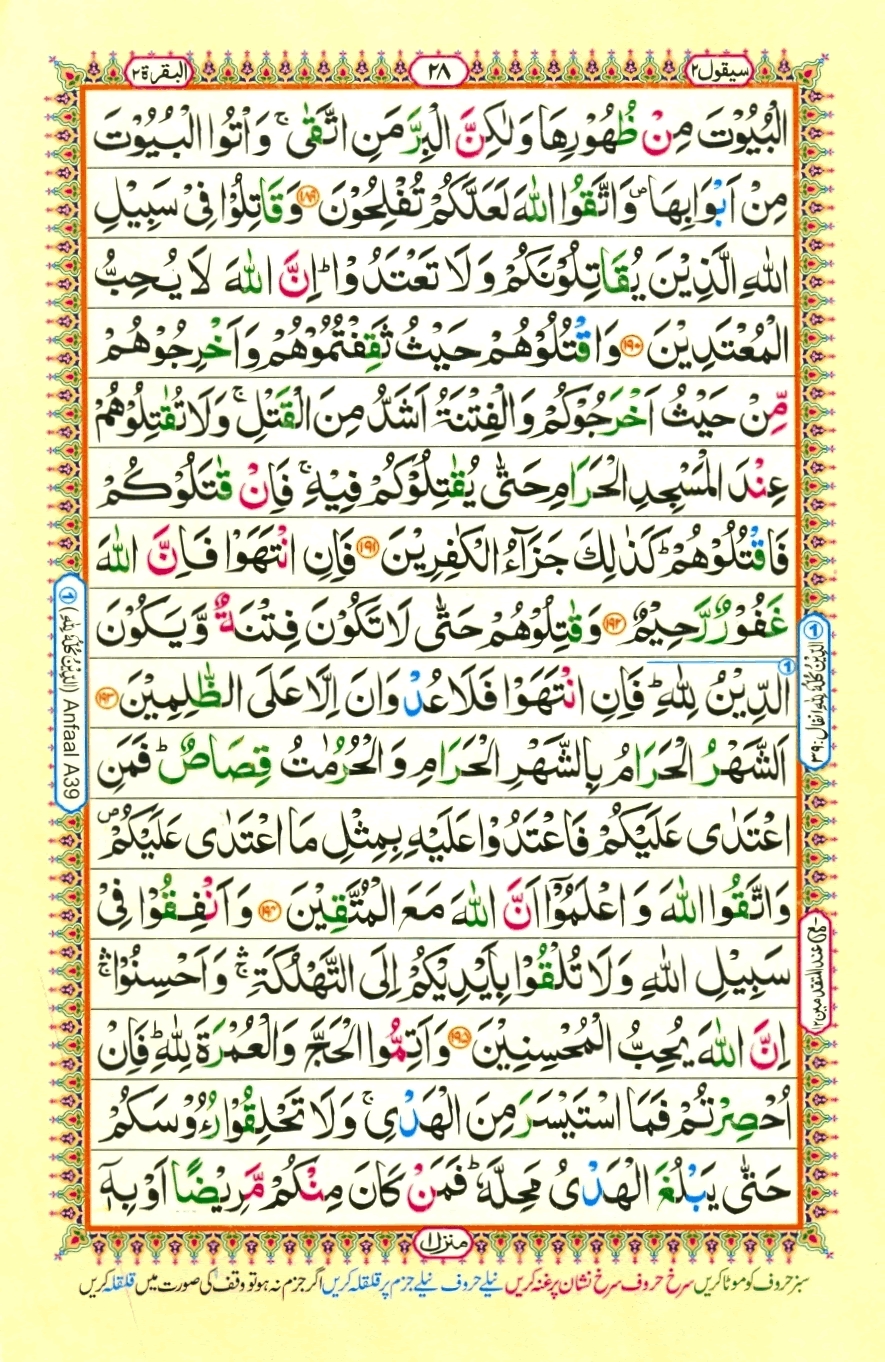 سيقول ٢
٢٨
البقرة ٢
الْبُيُوْتَ مِنْ ظُهُوْرِهَا وَلٰكِنَّ الْبِرَّ مَنِ اتَّقٰى ۚ وَاْتُوا الْبُيُوْتَ
مِنْ اَبْوَابِهَا ۪ وَاتَّقُوا اللّٰهَ لَعَلَّكُمْ تُفْلِحُوْنَ ﴿۱۸۹﴾ وَقَاتِلُوْا فِيْ سَبِيْلِ
اللّٰهِ الَّذِيْنَ يُقَاتِلُوْنَكُمْ وَلَا تَعْتَدُوْا ؕ اِنَّ اللّٰهَ لَا يُحِبُّ
الْمُعْتَدِيْنَ ﴿۱۹۰﴾ وَاقْتُلُوْهُمْ حَيْثُ ثَقِفْتُمُوْهُمْ وَاَخْرِجُوْهُمْ
مِّنْ حَيْثُ اَخْرَجُوْكُمْ وَالْفِتْنَةُ اَشَدُّ مِنَ الْقَتْلِ ۚ وَلَا تُقٰتِلُوْهُمْ
عِنْدَ الْمَسْجِدِ الْحَرَامِ حَتّٰى يُقٰتِلُوْكُمْ فِيْهِ ۚ فَاِنْ قٰتَلُوْكُمْ
فَاقْتُلُوْهُمْ ؕ كَذٰلِكَ جَزَآءُ الْكٰفِرِيْنَ ﴿۱۹۱﴾ فَاِنِ انْتَهَوْا فَاِنَّ اللّٰهَ
غَفُوْرٌ رَّحِيْمٌ ﴿۱۹۲﴾ وَقٰتِلُوْهُمْ حَتّٰى لَا تَكُوْنَ فِتْنَةٌ وَّيَكُوْنَ
الدِّيْنُ لِلّٰهِ ؕ فَاِنِ انْتَهَوْا فَلَا عُدْوَانَ اِلَّا عَلَى الظّٰلِمِيْنَ ﴿۱۹۳﴾
اَلشَّهْرُ الْحَرَامُ بِالشَّهْرِ الْحَرَامِ وَالْحُرُمٰتُ قِصَاصٌ ؕ فَمَنِ
اعْتَدٰى عَلَيْكُمْ فَاعْتَدُوْا عَلَيْهِ بِمِثْلِ مَا اعْتَدٰى عَلَيْكُمْ ۪
وَاتَّقُوا اللّٰهَ وَاعْلَمُوْۤا اَنَّ اللّٰهَ مَعَ الْمُتَّقِيْنَ ﴿۱۹۴﴾ وَاَنْفِقُوْا فِيْ
سَبِيْلِ اللّٰهِ وَلَا تُلْقُوْا بِاَيْدِيْكُمْ اِلَى التَّهْلُكَةِ ۛۚ وَاَحْسِنُوْا ۛۚ
اِنَّ اللّٰهَ يُحِبُّ الْمُحْسِنِيْنَ ﴿۱۹۵﴾ وَاَتِمُّوا الْحَجَّ وَالْعُمْرَةَ لِلّٰهِ ؕ فَاِنْ
اُحْصِرْتُمْ فَمَا اسْتَيْسَرَ مِنَ الْهَدْيِ ۚ وَلَا تَحْلِقُوْا رُءُوْسَكُمْ
حَتّٰى يَبْلُغَ الْهَدْيُ مَحِلَّهٗ ؕ فَمَنْ كَانَ مِنْكُمْ مَّرِيْضًا اَوْ بِهٖۤ
① الدِّيْنُ كُلُّهٗ لِلّٰهِ انفال: ۳۹
① (الدِّيْنُ كُلُّهٗ لِلّٰهِ) Anfaal A39
مع عند المتقدمين ۱۲
منزل ۱
سبز حروف کو موٹا کریں سرخ حروف سرخ نشان پر غنہ کریں نیلے حروف نیلے جزم پر قلقلہ کریں اگر جزم نہ ہو تو وقف کی صورت میں قلقلہ کریں